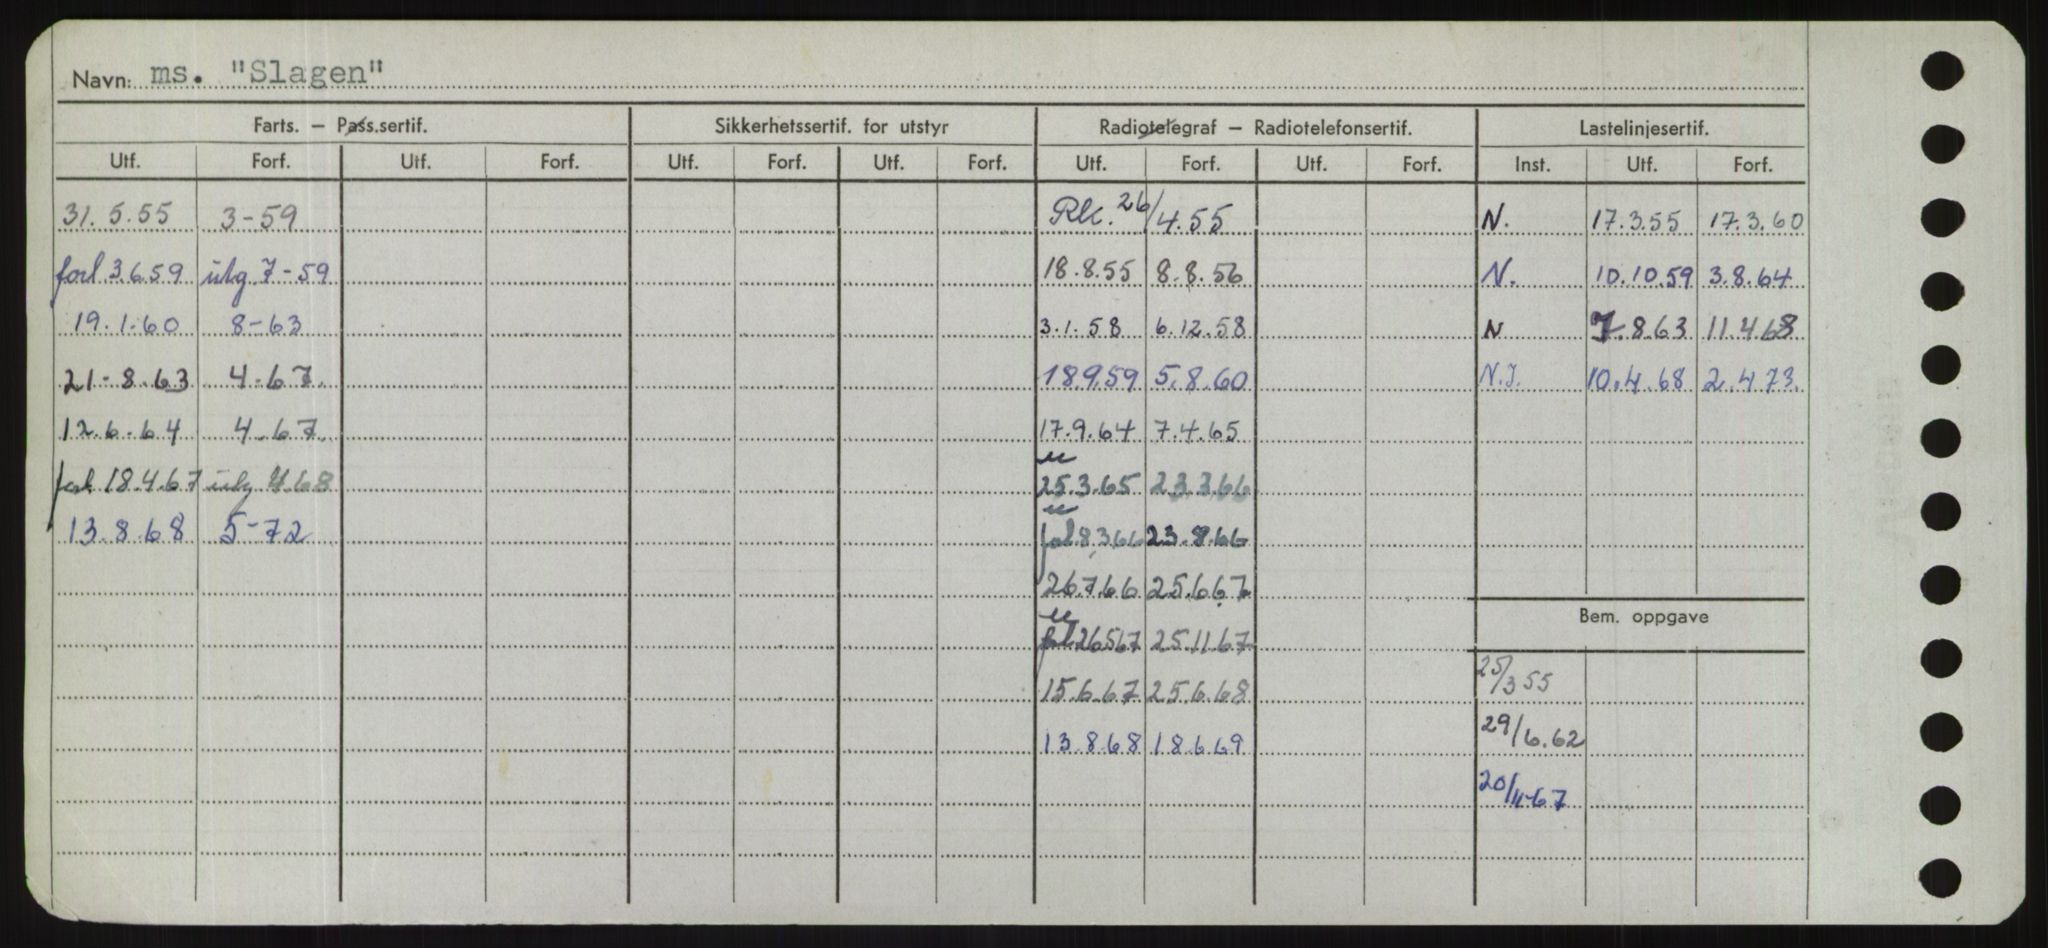 Navn: ms. "Slagen"
Farts. – Pass.sertif. Sikkerhetssertif. for utstyr Radiotelegraf – Radiotelefonsertif. Lastelinjesertif.
Utf. Forf. Utf. Forf. Utf. Forf. Utf. Forf. Utf. Forf. Utf. Forf. Inst. Utf. Forf.
31.5.55 3-59 Rk. 26/4.55 N. 17.3.55 17.3.60
forl 3.6.59 utg 7-59 18.8.55 8.8.56 N. 10.10.59 3.8.64
19.1.60 8-63 3.1.58 6.12.58 N 7.8.63 11.4.68
21-8.63 4-67. 18.9.59 5.8.60 N.I. 10.4.68 2.4.73.
12.6-64 4.67. 17.9.64 7.4.65
forl 18.4.67 utg 4.68 25.3.65 23.3.66
13.8.68 5-72 forl 8.3.66 23.8.66
26.7.66 25.6.67
Bem. oppgave
forl 26.5.67 25.11.67
25/3 55
15.6.67 25.6.68
29/6.62
13.8.68 18.6.69
20/11-67